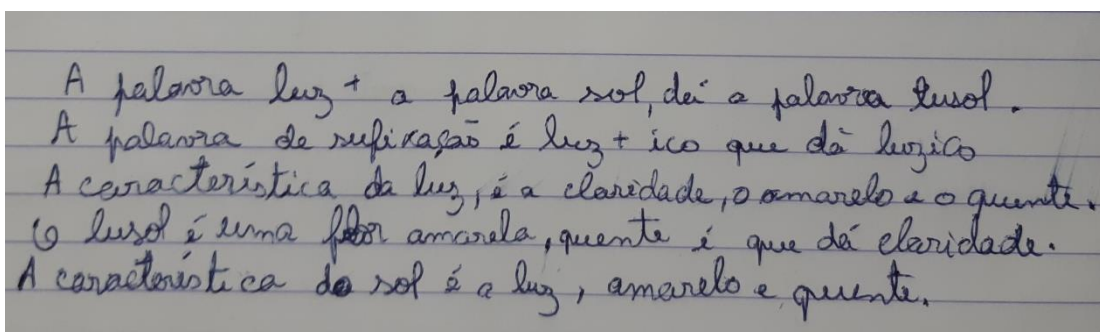 A palavra luz + a palavra sol, dá a palavra lusol.
A palavra de sufixação é luz + ico que dá luzico
A característica da luz, é a claridade, o amarelo e o quente.
O lusol é uma flor amarela, quente é que dá claridade.
A característica do sol é a luz, amarelo e quente.